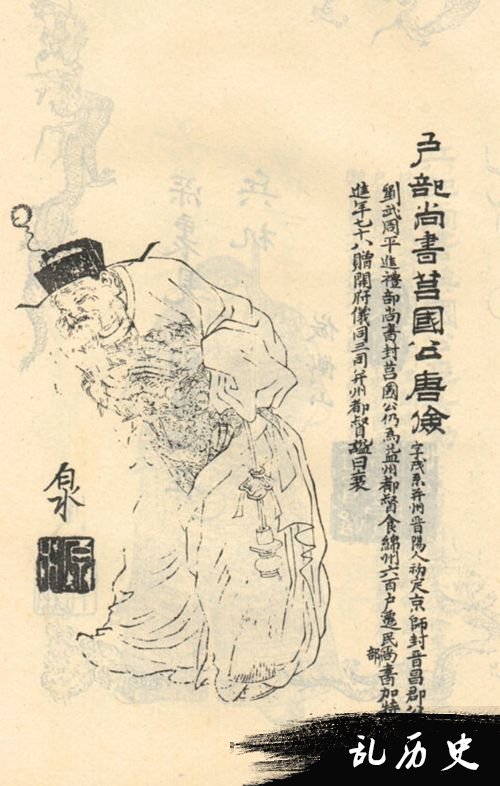 戶部尚書莒國公唐儉
字茂系并州晉陽人初定京師封晉昌郡公
劉武周平進禮部尚書封莒國公仍為益州都督食綿州六百户遷民部尚書加特
進年七十八贈開府儀同三司并州都督謚曰襄
白水
乱历史